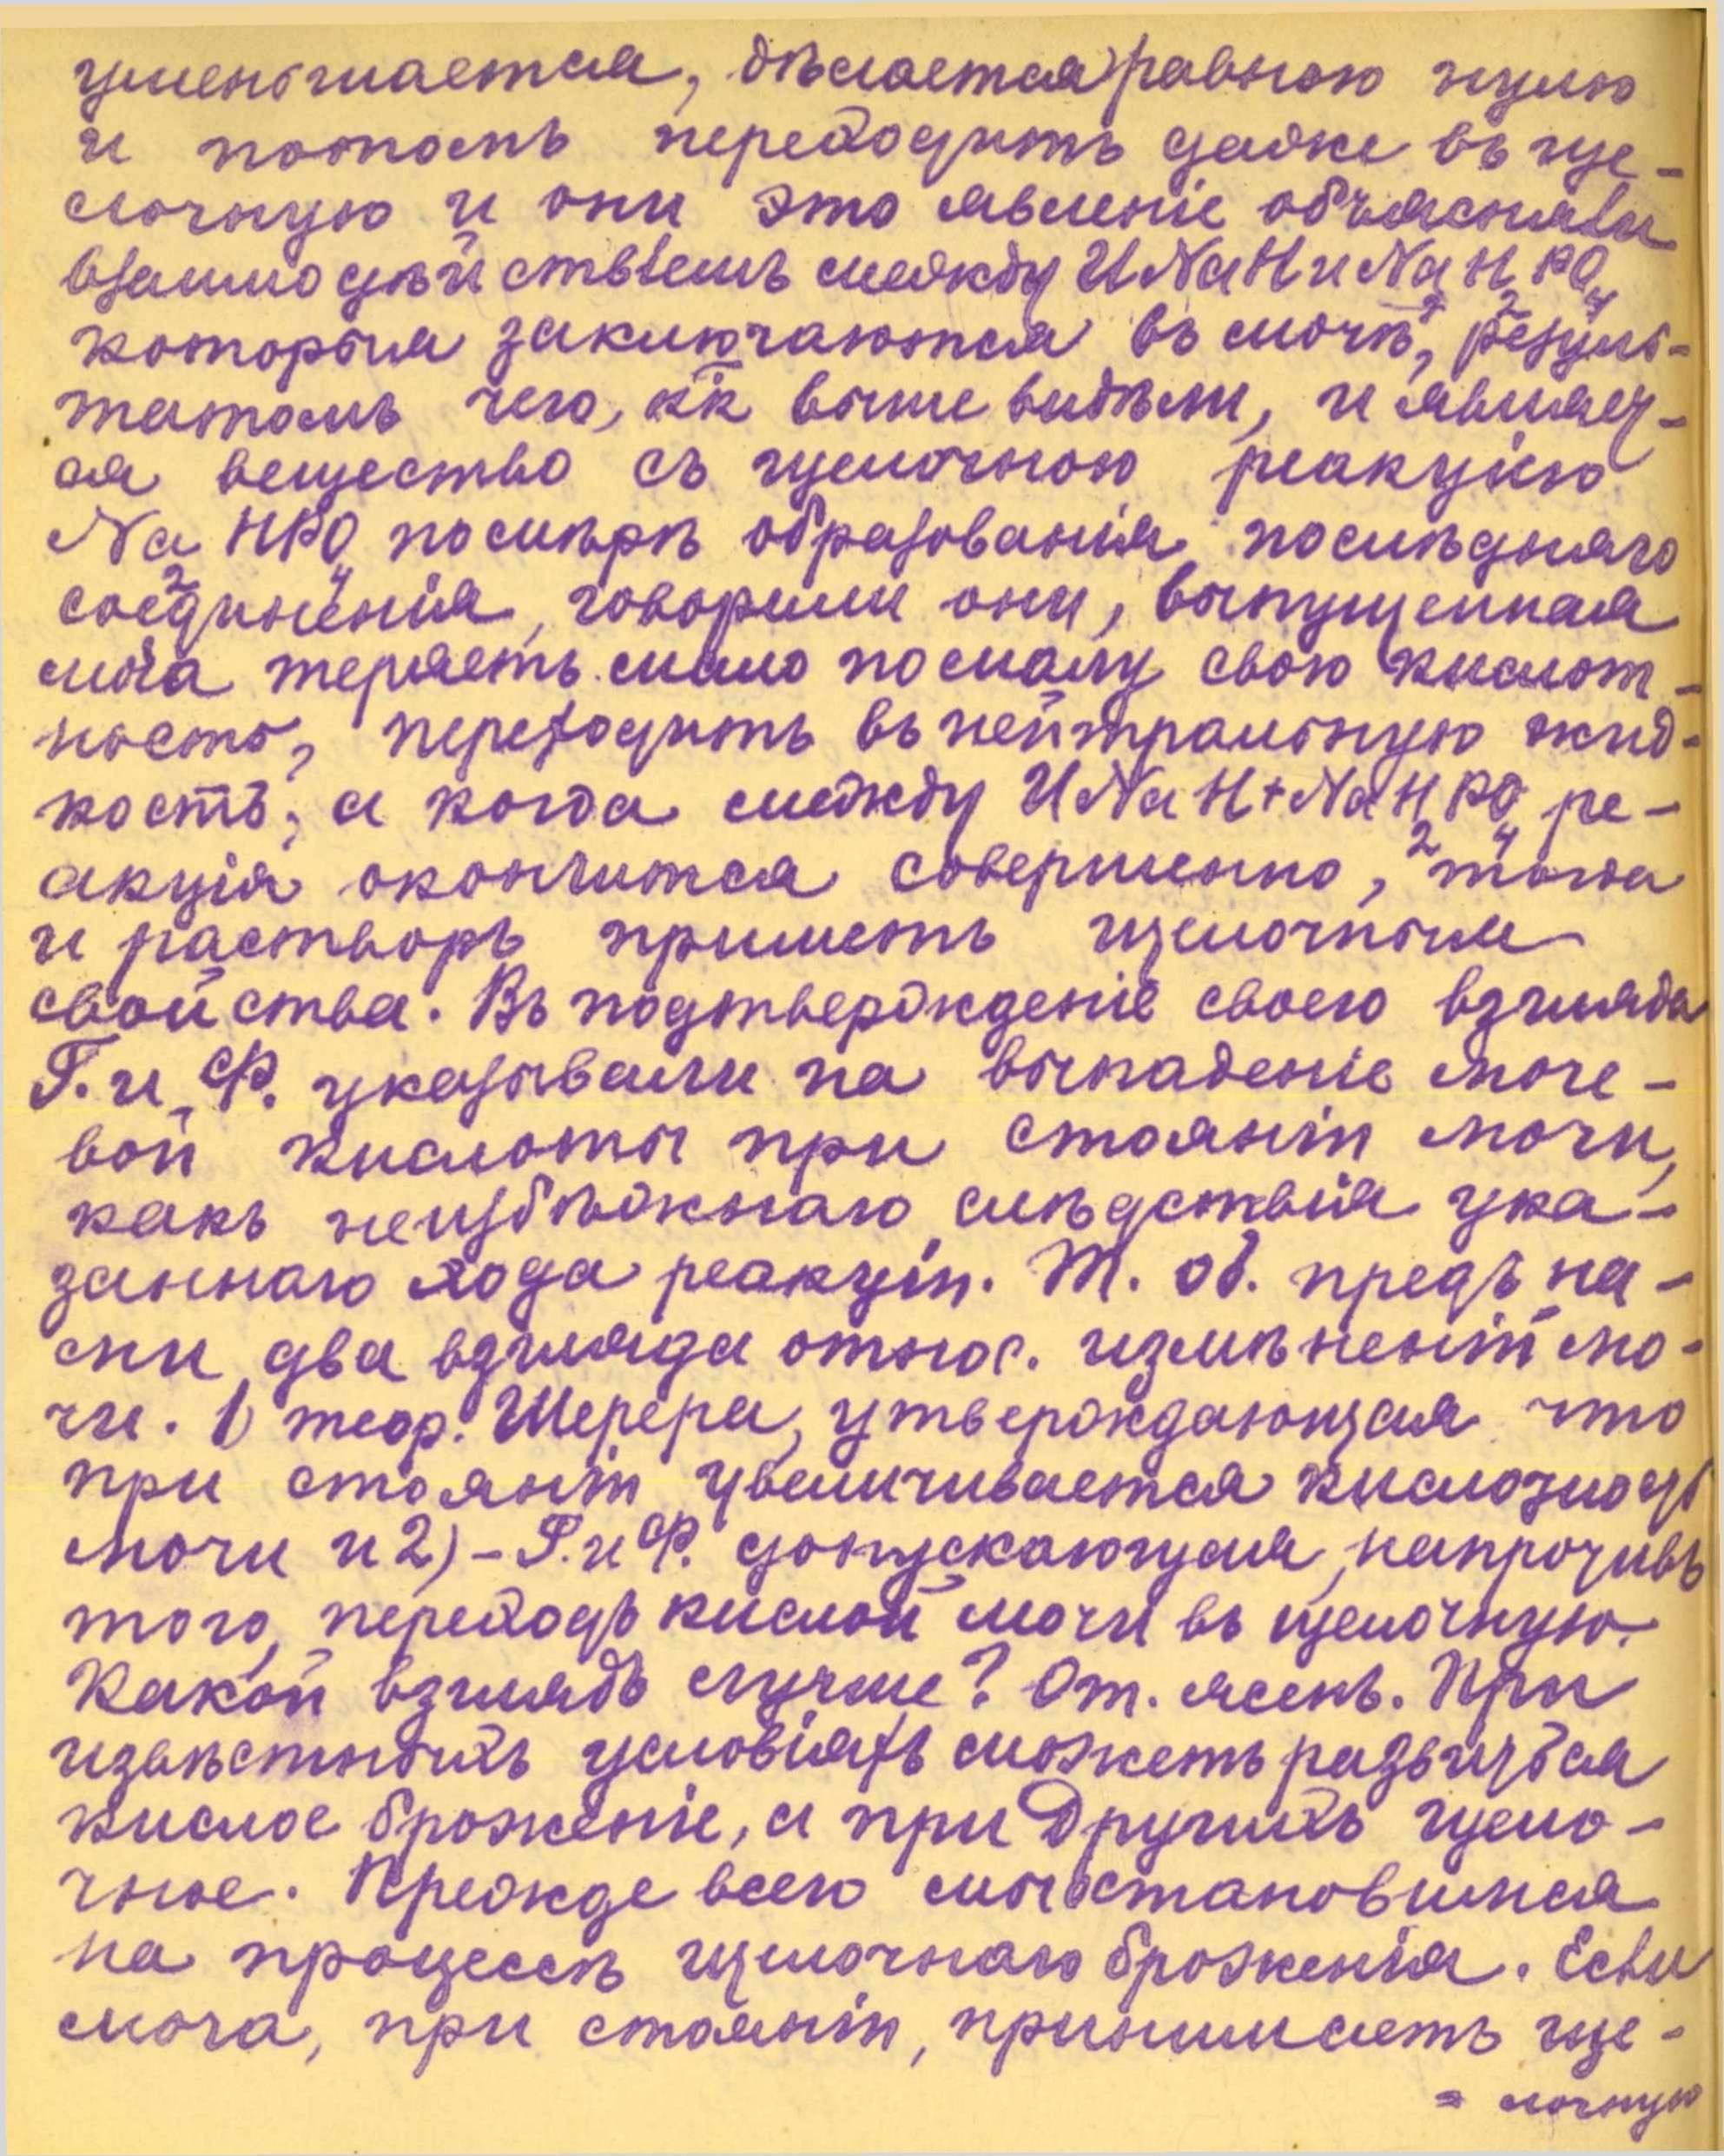 уменьшается, дѣлается равною нулю
и потомъ переходитъ даже въ ще-
лочную и они это явленіе объясняли
взаимодѣйствіемъ между UNaH и NaH2PO4
которыя заключаются въ мочѣ, резуль-
татомъ чего, кк выше видѣли, и являет-
ся вещество съ щелочною реакціею
Na2HPO4 по мѣрѣ образованія послѣдняго
соединенія, говорили они, выпущенная
моча теряетъ мало по малу свою кислот-
ность, переходитъ въ нейтральную жид-
кость, а когда между UNaH+NaH2PO4 ре-
акція окончится совершенно, тогда
и растворъ приметъ щелочныя
свойства. Въ подтвержденіе своего взгляда
Г. и Ф. указывали на выпаденіе моче-
вой кислоты при стояніи мочи,
какъ неизбѣжнаго слѣдствія ука-
заннаго хода реакціи. Т. об. предъ на-
ми два взгляда относ. измѣненій мо-
чи. 1) теор. Шерера, утверждающая что
при стояніи увеличивается кислотность
мочи и 2) - Г. и Ф. допускающая, напротивъ
того, переходъ кислой мочи въ щелочную.
Какой взглядъ лучше? От. ясенъ. При
извѣстныхъ условіяхъ можетъ развиться
кислое броженіе, а при другихъ щело-
чное. Прежде всего мы остановимся
на процессѣ щелочнаго броженія. Если
моча, при стояніи, принимаетъ ще-
= лочную